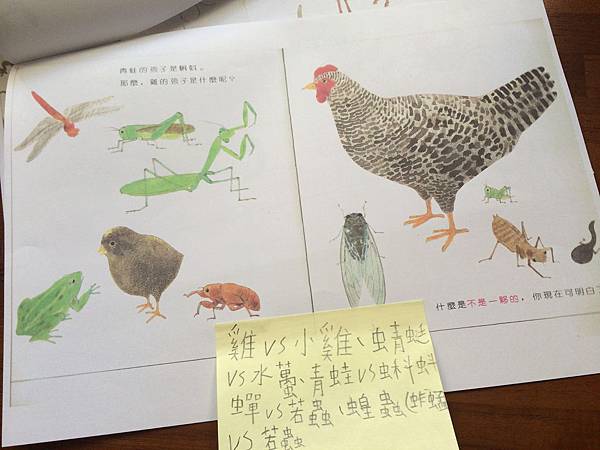 青蛙的孩子是蝌蚪。
那麼，雞的孩子是什麼呢？
什麼是不是一夥的，你現在可明白
雞 vs 小雞、蜻蜓
vs 水蠆、青蛙 vs 蝌蚪
蟬 vs 若蟲、蝗蟲(蚱蜢
vs 若蟲